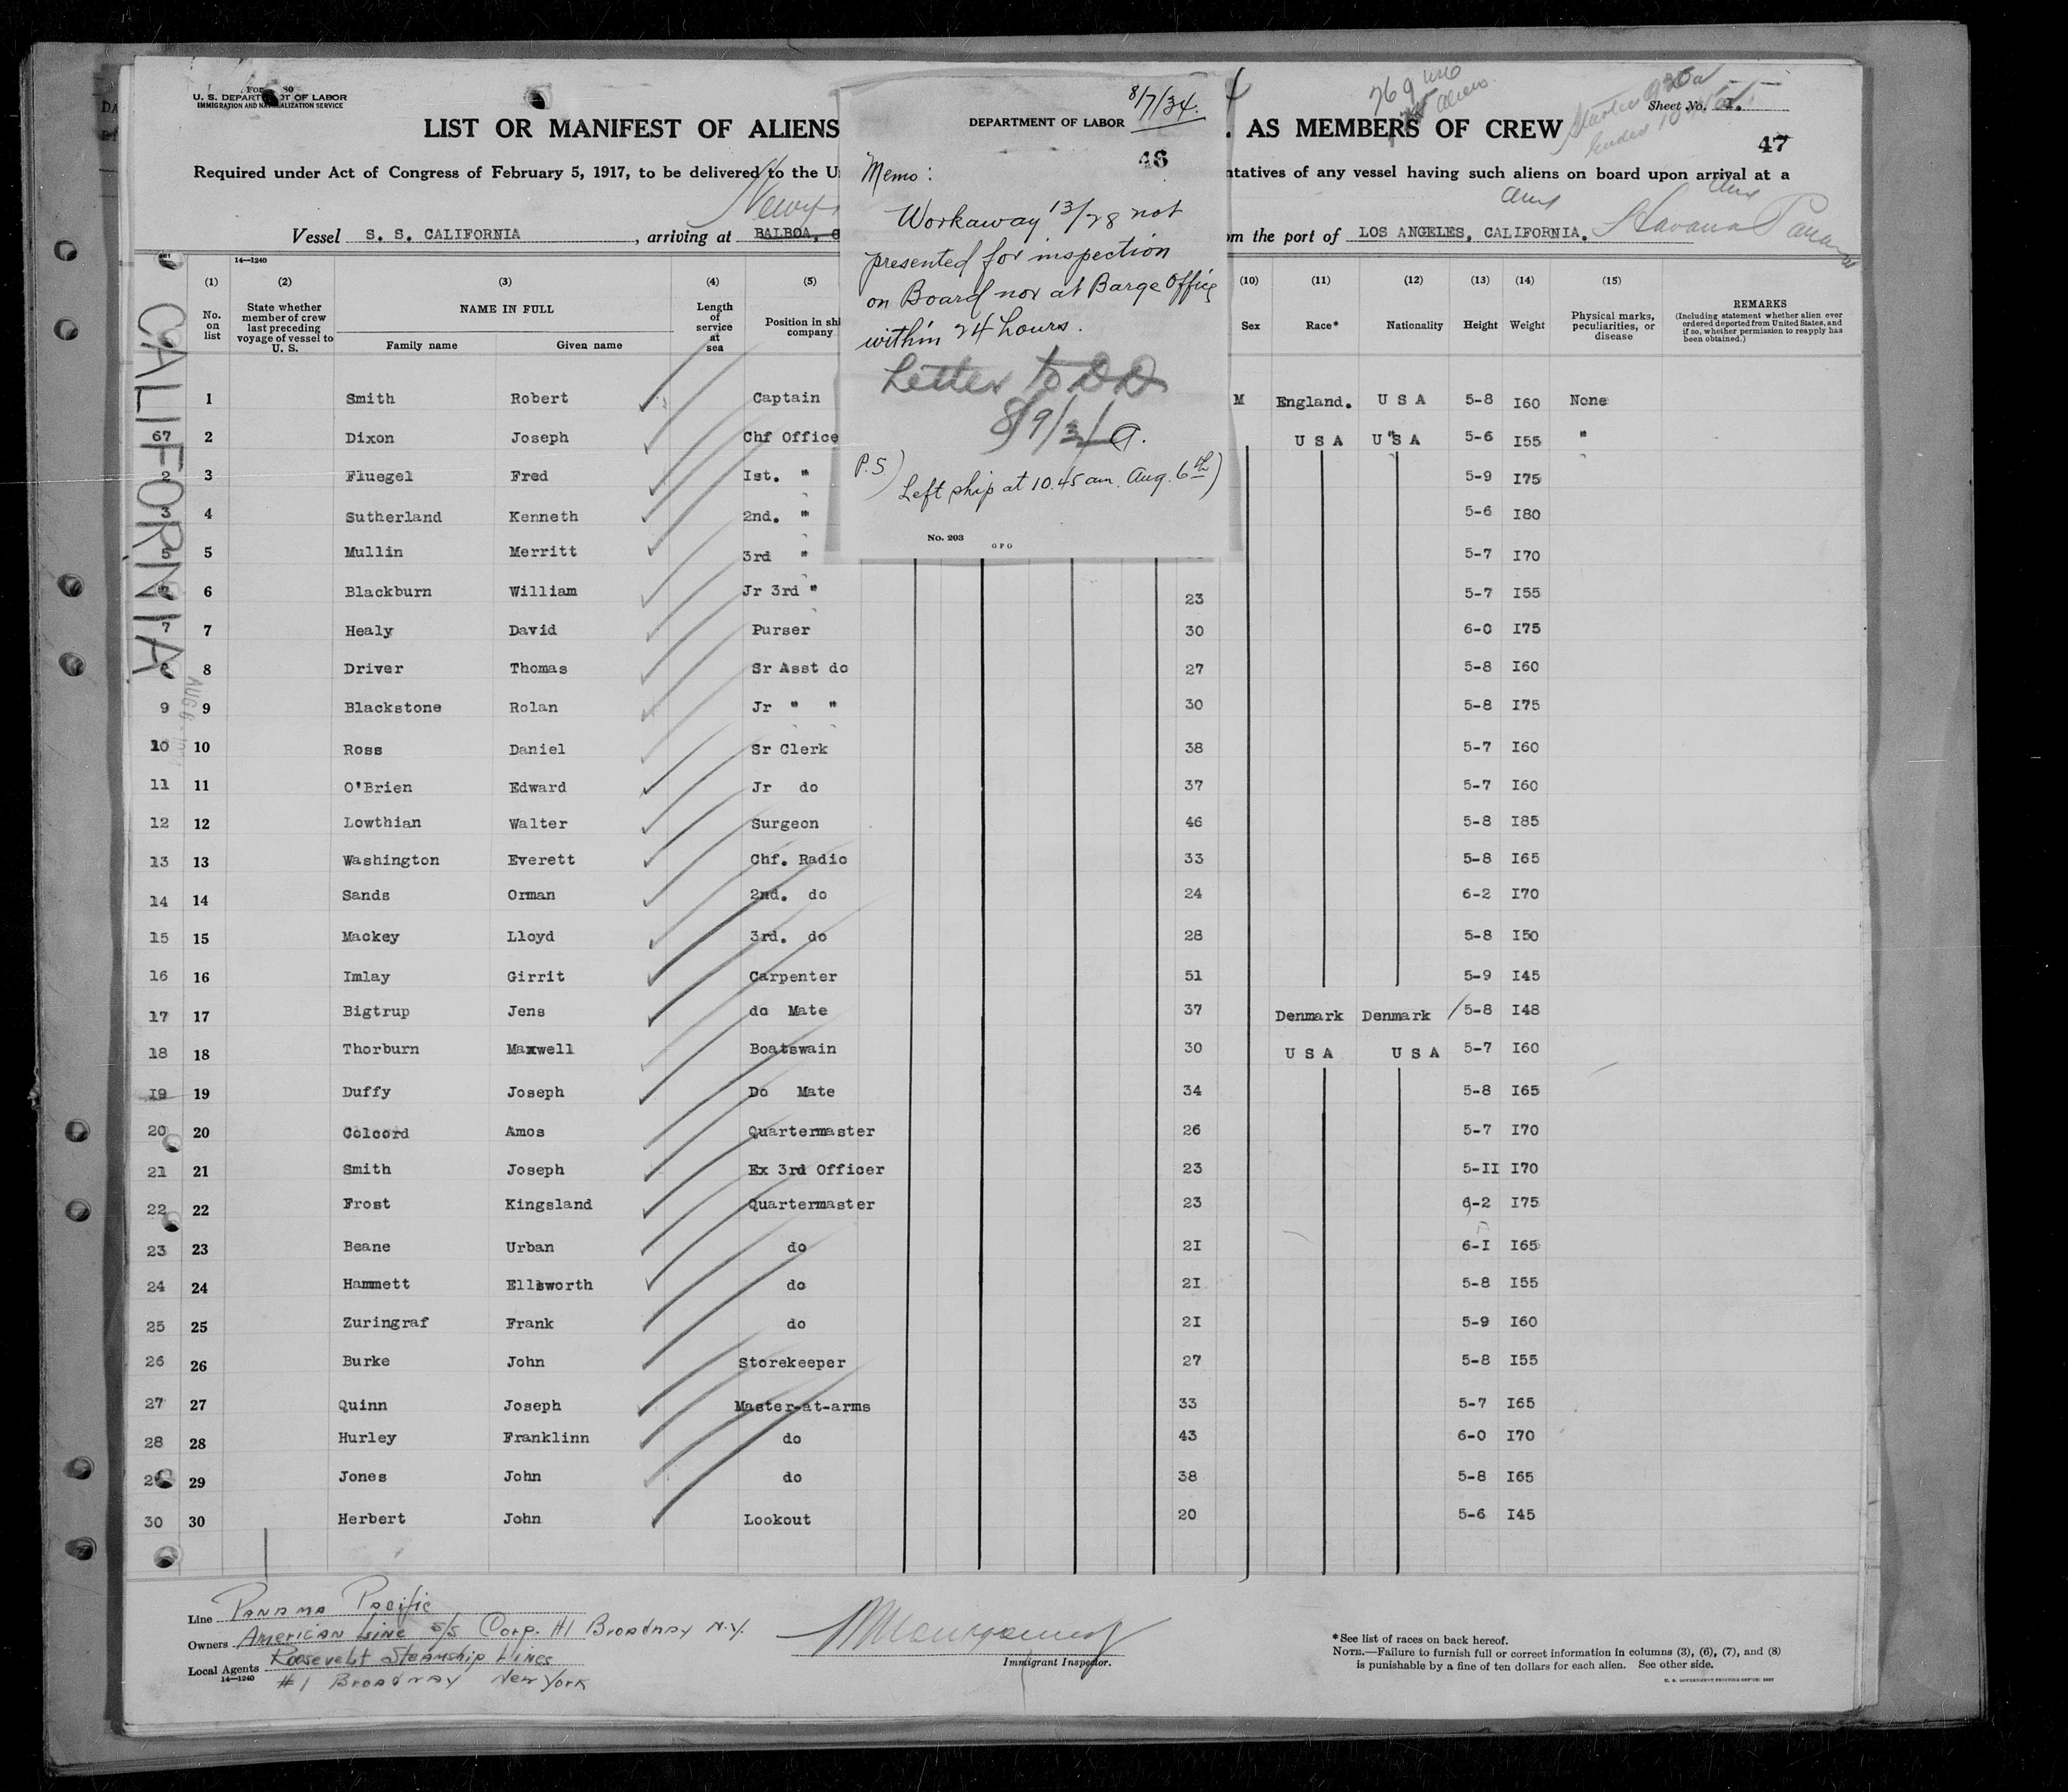 U. S. DEPARTMENT OF LABOR
IMMIGRATION AND NATURALIZATION SERVICE
Sheet No.
LIST OR MANIFEST OF ALIENS AS MEMBERS OF CREW
47
Required under Act of Congress of February 5, 1917, to be delivered to the U ntatives of any vessel having such aliens on board upon arrival at a
Vessel S. S. CALIFORNIA, arriving at BALBOA, om the port of LOS ANGELES, CALIFORNIA. Havana Panama
8/7/34.
DEPARTMENT OF LABOR
46
Memo:
Workaway 13/28 not
presented for inspection
on Board nor at Barge Office
within 24 hours.
Letter to DD
P.S) Left ship at 10.45 am. Aug. 6th)
No. 203
GPO
CALIFORNIA
14—1240
(1) (2) (3) (4) (5) (10) (11) (12) (13) (14) (15)
No. on list
State whether member of crew last preceding voyage of vessel to U. S.
NAME IN FULL
Family name Given name
Length of service at sea
Position in shi company
Sex Race* Nationality Height Weight
Physical marks, peculiarities, or disease
REMARKS
(Including statement whether alien ever ordered deported from United States, and if so, whether permission to reapply has been obtained.)
1 Smith Robert Captain M England. U S A 5-8 I60 None
67 2 Dixon Joseph Chf Office U S A U S A 5-6 I55 "
2 3 Fluegel Fred Ist. " 5-9 I75
3 4 Sutherland Kenneth 2nd. " 5-6 I80
5 5 Mullin Merritt 3rd " 5-7 I70
6 Blackburn William Jr 3rd " 23 5-7 I55
7 7 Healy David Purser 30 6-0 I75
8 Driver Thomas Sr Asst do 27 5-8 I60
9 9 Blackstone Rolan Jr " " 30 5-8 I75
10 10 Ross Daniel Sr Clerk 38 5-7 I60
11 11 O'Brien Edward Jr do 37 5-7 I60
12 12 Lowthian Walter Surgeon 46 5-8 I85
13 13 Washington Everett Chf. Radio 33 5-8 I65
14 14 Sands Orman 2nd. do 24 6-2 I70
15 15 Mackey Lloyd 3rd. do 28 5-8 I50
16 16 Imlay Girrit Carpenter 51 5-9 I45
17 17 Bigtrup Jens do Mate 37 Denmark Denmark 5-8 I48
18 18 Thorburn Maxwell Boatswain 30 U S A U S A 5-7 I60
19 19 Duffy Joseph Do Mate 34 5-8 I65
20 20 Colcord Amos Quartermaster 26 5-7 I70
21 21 Smith Joseph Ex 3rd Officer 23 5-II I70
22 22 Frost Kingsland Quartermaster 23 6-2 I75
23 23 Beane Urban do 2I 6-I I65
24 24 Hammett Ellsworth do 2I 5-8 I55
25 25 Zuringraf Frank do 2I 5-9 I60
26 26 Burke John Storekeeper 27 5-8 I55
27 27 Quinn Joseph Master-at-arms 33 5-7 I65
28 28 Hurley Franklinn do 43 6-0 I70
29 Jones John do 38 5-8 I65
30 30 Herbert John Lookout 20 5-6 I45
Line Panama Pacific
Owners American Line S/S Corp. #1 Broadway N.Y.
Local Agents Roosevelt Steamship Lines
14—1240
#1 Broadway New York
Immigrant Inspector.
*See list of races on back hereof.
NOTE.—Failure to furnish full or correct information in columns (3), (6), (7), and (8)
is punishable by a fine of ten dollars for each alien. See other side.